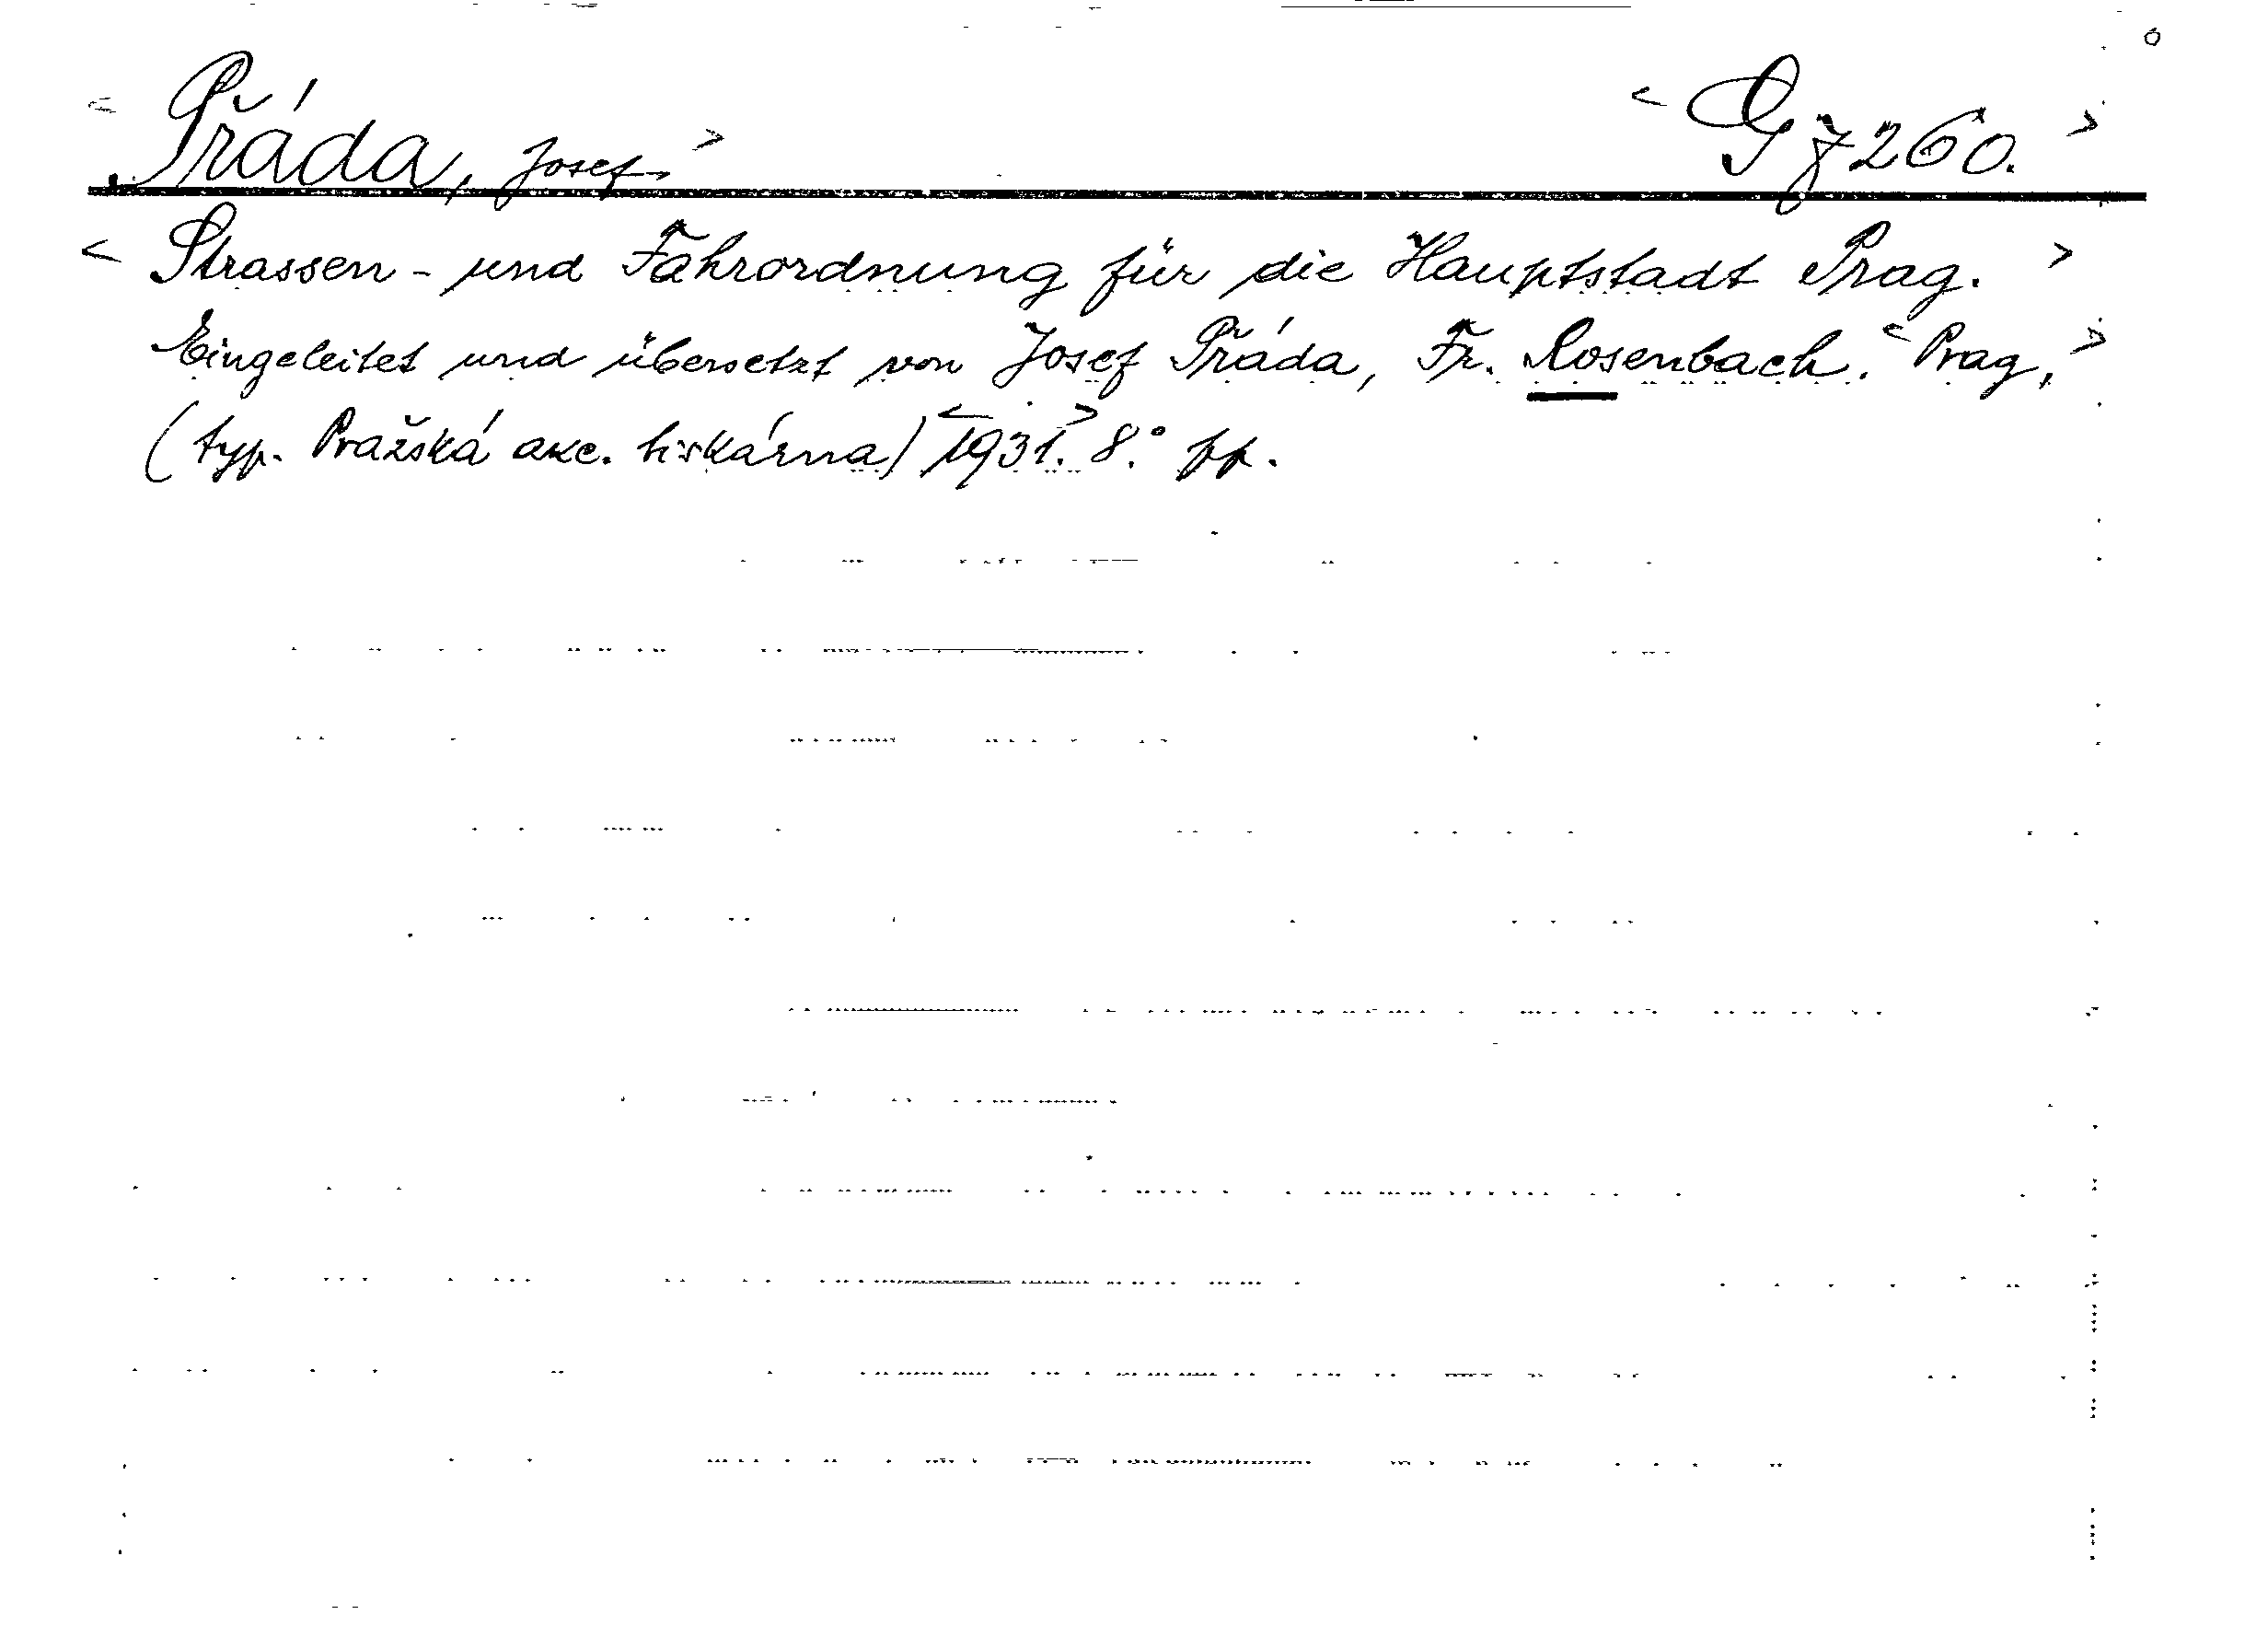 < Přáda, Josef. > < G ž 260. >
< Strassen - und Fahrordnung für die Hauptstadt Prag. >
Eingeleitet und übersetzt von Josef Přáda, Fr. Rosenbach. < Prag, >
(typ. Pražská akc. tiskárna) < 1931. > 8.° pp.